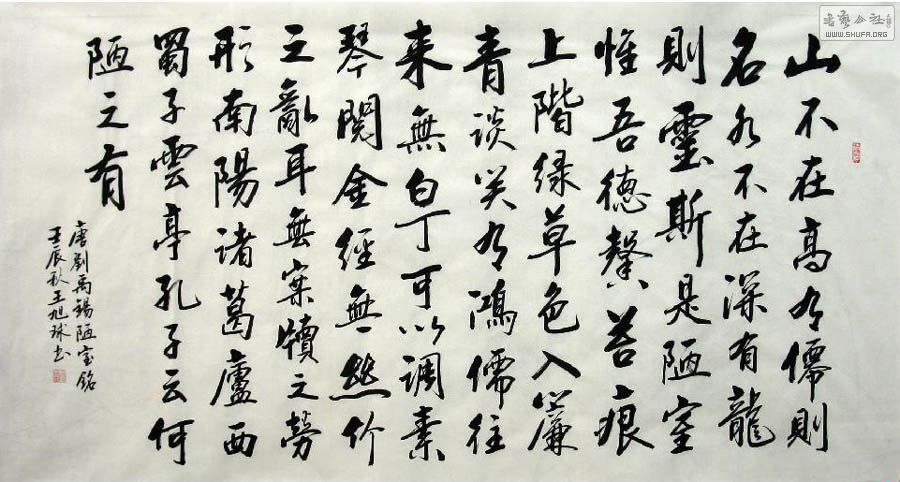 山不在高有僊則
名水不在深有龍
則靈斯是陋室
惟吾德馨苔痕
上階緑草色入簾
青談笑有鴻儒往
来無白丁可以調素
琴閱金經無絲竹
之亂耳無案牘之勞
形南陽諸葛廬西
蜀子雲亭孔子云何
陋之有
唐劉禹錫陋室銘
壬辰秋王旭球书
WWW.SHUFA.ORG